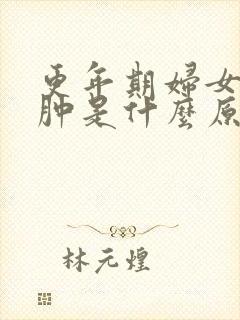 更年期婦女
肿是什麼原
林元煌